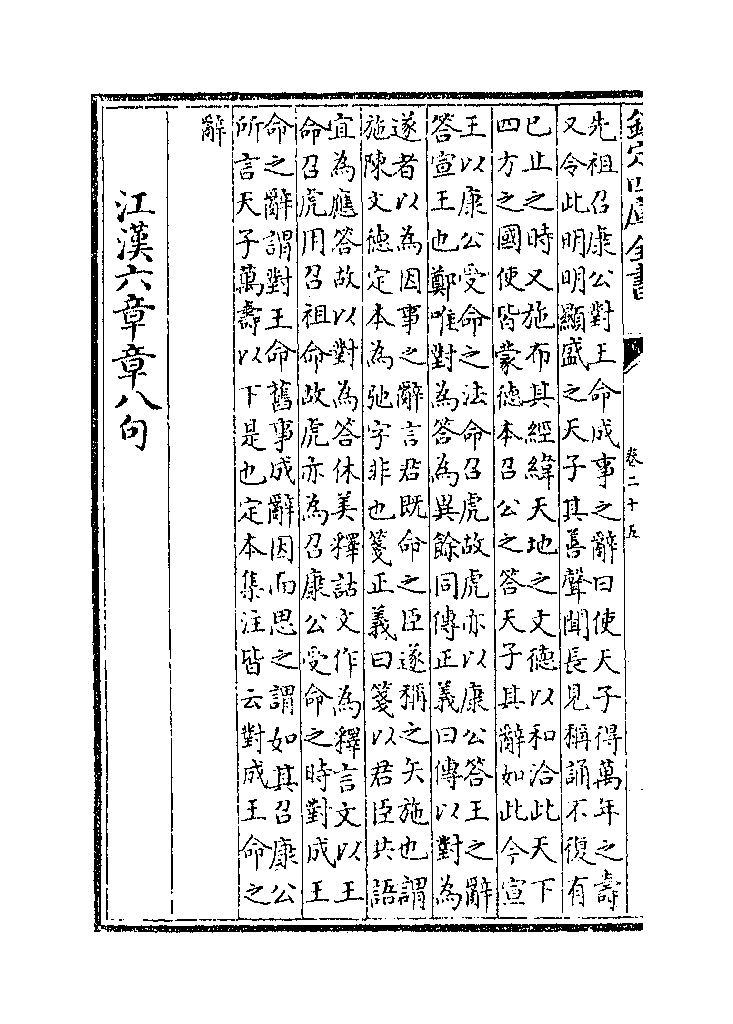 欽定四庫全書
卷二十五
先祖召康公對王命成事之辭曰使天子得萬年之壽
又令此明明顯盛之天子其善聲聞長見稱誦不復有
已止之時又施布其經緯天地之文德以和洽此天下
四方之國使皆蒙德本召公之答天子其辭如此今宣
王以康公受命之法命召虎故虎亦以康公答王之辭
答宣王也鄭唯對為答為異餘同傳正義曰傳以對為
遂者以為因事之辭言君既命之臣遂稱之矢施也謂
施陳文德定本為弛字非也箋正義曰箋以君臣共語
宜為應答故以對為答休美釋詁文作為釋言文以王
命召虎用召祖命故虎亦為召康公受命之時對成王
命之辭謂對王命舊事成辭因而思之謂如其召康公
所言天子萬壽以下是也定本集注皆云對成王命之
辭
江漢六章章八句